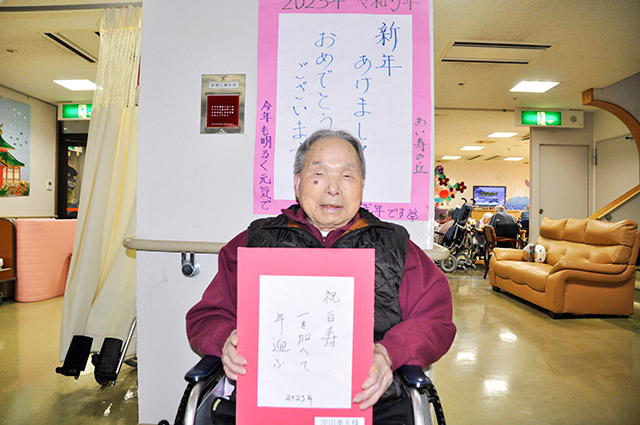 2023年 令和5年
新年
あけまして
おめでとう
ございます
今年も明るく元気で
あい寿の丘
年です
祝白寿
一を加へて
年迎ふ
2023年